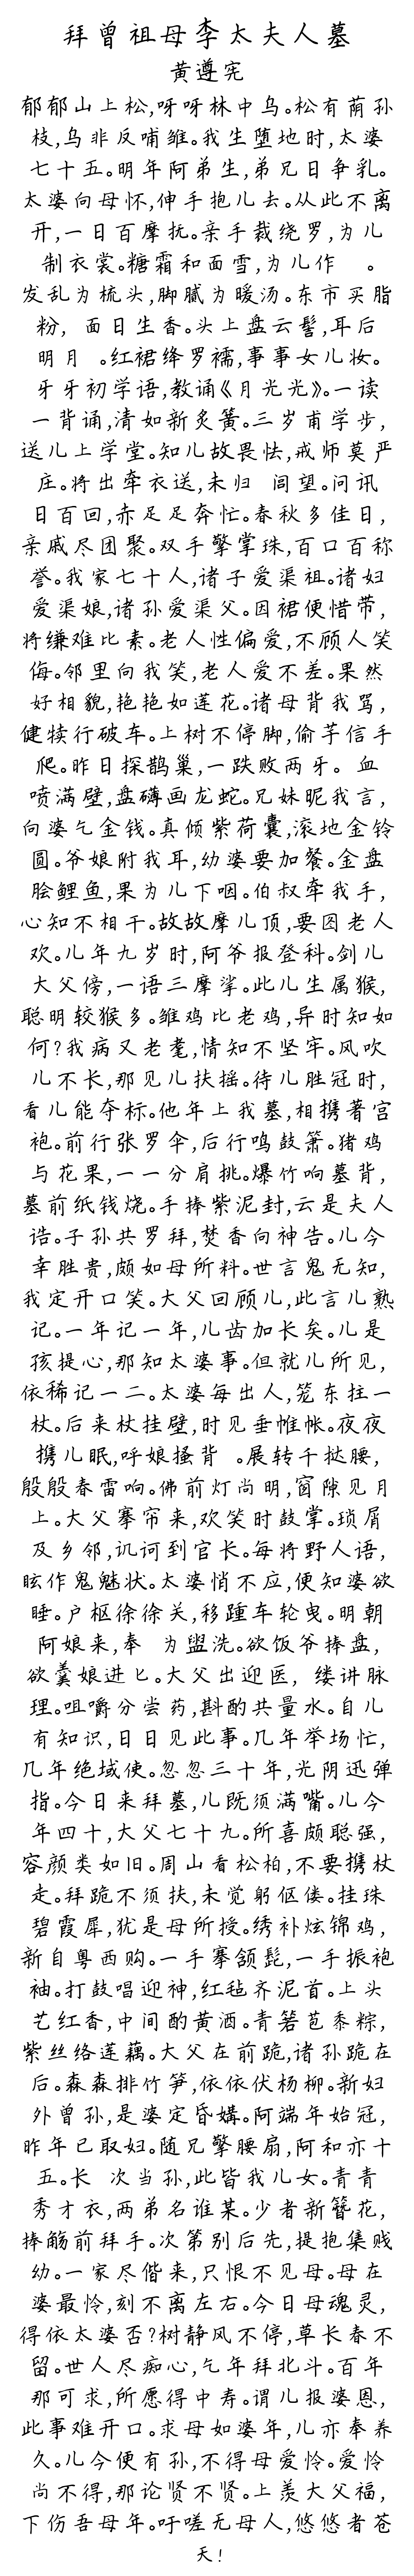 拜曾祖母李太夫人墓
黄遵宪
郁郁山上松,呀呀林中乌。松有荫孙
枝,乌非反哺雏。我生堕地时,太婆
七十五。明年阿弟生,弟兄日争乳。
太婆向母怀,伸手抱儿去。从此不离
开,一日百摩抚。亲手裁绕罗,为儿
制衣裳。糖霜和面雪,为儿作 。
发乱为梳头,脚腻为暖汤。东市买脂
粉, 面日生香。头上盘云髻,耳后
明月 。红裙绛罗襦,事事女儿妆。
牙牙初学语,教诵《月光光》。一读
一背诵,清如新炙簧。三岁甫学步,
送儿上学堂。知儿故畏怯,戒师莫严
庄。将出牵衣送,未归 闾望。问讯
日百回,赤足足奔忙。春秋多佳日,
亲戚尽团聚。双手擎掌珠,百口百称
誉。我家七十人,诸子爱渠祖。诸妇
爱渠娘,诸孙爱渠父。因裙便惜带,
将缣难比素。老人性偏爱,不顾人笑
侮。邻里向我笑,老人爱不差。果然
好相貌,艳艳如莲花。诸母背我骂,
健犊行破车。上树不停脚,偷芋信手
爬。昨日探鹊巢,一跌败两牙。 血
喷满壁,盘礴画龙蛇。兄妹昵我言,
向婆乞金钱。真倾紫荷囊,滚地金铃
圆。爷娘附我耳,劝婆要加餐。金盘
脍鲤鱼,果为儿下咽。伯叔牵我手,
心知不相干。故故摩儿顶,要图老人
欢。儿年九岁时,阿爷报登科。剑儿
大父傍,一语三摩挲。此儿生属猴,
聪明较猴多。雏鸡比老鸡,异时知如
何?我病又老耄,情知不坚牢。风吹
儿不长,那见儿扶摇。待儿胜冠时,
看儿能夺标。他年上我墓,相携著宫
袍。前行张罗伞,后行鸣鼓箫。猪鸡
与花果,一一分肩挑。爆竹响墓背,
墓前纸钱烧。手捧紫泥封,云是夫人
诰。子孙共罗拜,焚香向神告。儿今
幸胜贵,颇如母所料。世言鬼无知,
我定开口笑。大父回顾儿,此言儿熟
记。一年记一年,儿齿加长矣。儿是
孩提心,那知太婆事。但就儿所见,
依稀记一二。太婆每出入,笼东拄一
杖。后来杖挂壁,时见垂帷帐。夜夜
携儿眠,呼娘搔背 。展转千捶腰,
殷殷春雷响。佛前灯尚明,窗隙见月
上。大父搴帘来,欢笑时鼓掌。琐屑
及乡邻,讥诃到官长。每将野人语,
眩作鬼魅状。太婆悄不应,便知婆欲
睡。户枢徐徐关,移踵车轮曳。明朝
阿娘来,奉 为盥洗。欲饭爷捧盘,
欲羹娘进匕。大父出迎医, 缕讲脉
理。咀嚼分尝药,斟酌共量水。自儿
有知识,日日见此事。几年举场忙,
几年绝域使。忽忽三十年,光阴迅弹
指。今日来拜墓,儿既须满嘴。儿今
年四十,大父七十九。所喜颇聪强,
容颜类如旧。周山看松柏,不要携杖
走。拜跪不须扶,未觉躬伛偻。挂珠
碧霞犀,犹是母所授。绣补炫锦鸡,
新自粤西购。一手搴颔髭,一手振袍
袖。打鼓唱迎神,红毡齐泥首。上头
艺红香,中间酌黄酒。青箬苞黍粽,
紫丝络莲藕。大父在前跪,诸孙跪在
后。森森排竹笋,依依伏杨柳。新妇
外曾孙,是婆定昏媾。阿端年始冠,
昨年已取妇。随兄擎腰扇,阿和亦十
五。长 次当孙,此皆我儿女。青青
秀才衣,两弟名谁某。少者新簪花,
捧觞前拜手。次第别后先,提抱集贱
幼。一家尽偕来,只恨不见母。母在
婆最怜,刻不离左右。今日母魂灵,
得依太婆否?树静风不停,草长春不
留。世人尽痴心,乞年拜北斗。百年
那可求,所愿得中寿。谓儿报婆恩,
此事难开口。求母如婆年,儿亦奉养
久。儿今便有孙,不得母爱怜。爱怜
尚不得,那论贤不贤。上羡大父福,
下伤吾母年。吁嗟无母人,悠悠者苍
天!